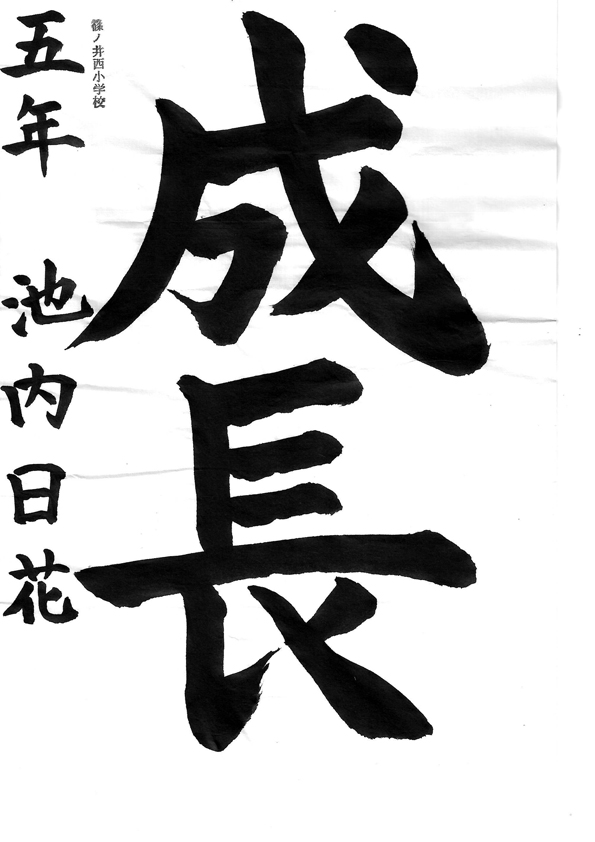 成長
篠ノ井西小学校
五年 池内日花